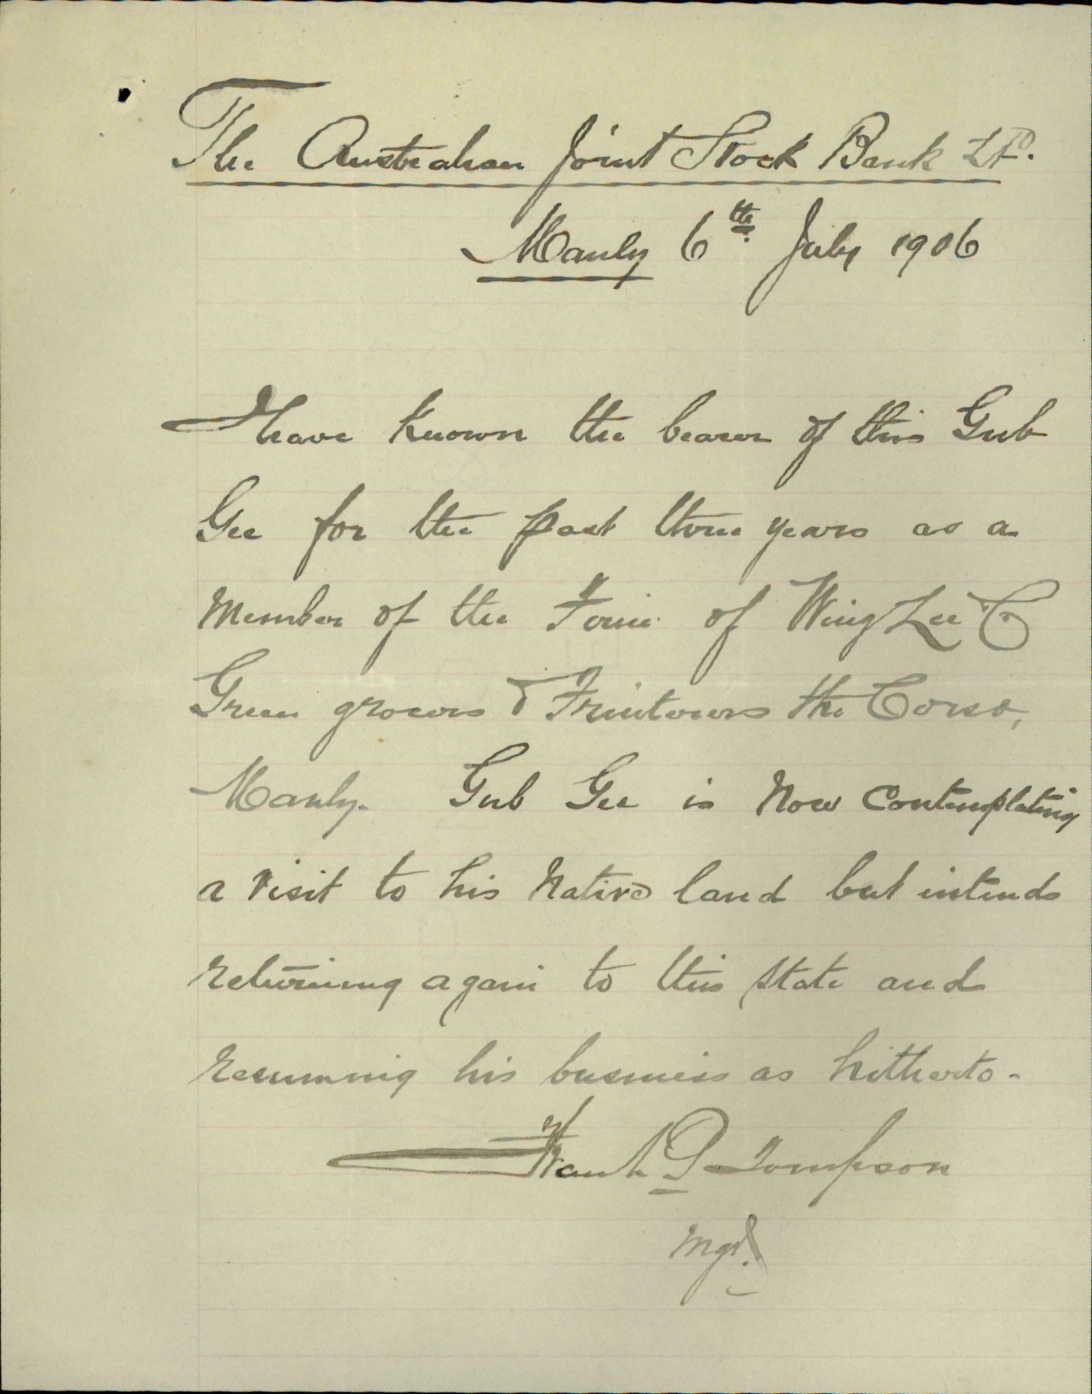 The Australian Joint Stock Bank Ltd.
Manly 6th July 1906
I have known the bearer of this Gub
Gee for the past three years as a
Member of the Firm of Wing Lee Co
Green grocers & Fruiterers the Corso,
Manly. Gub Gee is now contemplating
a visit to his native land but intends
returning again to this State and
resuming his business as hitherto -
Frank Thompson
Mgr.